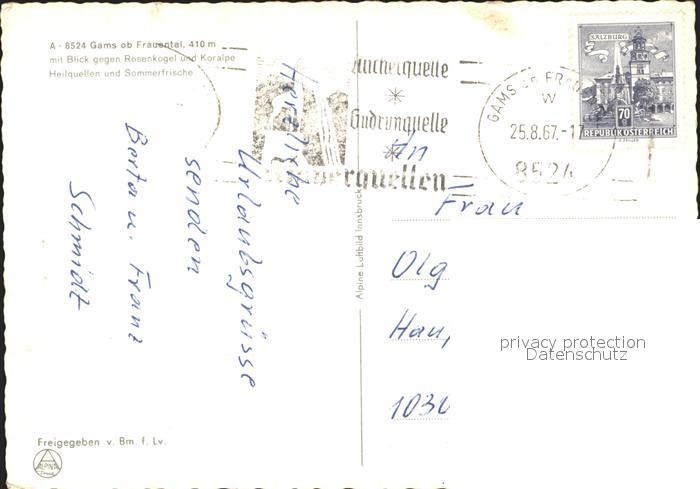 A - 8524 Gams ob Frauental, 410 m
mit Blick gegen Rosenkogel und Koralpe
Heilquellen und Sommerfrische
Herzliche
Urlaubsgrüsse
senden
Berta u. Franz
Schmidt
Freigegeben v. Bm. f. Lv.
ALPINA
Alpine Luftbild Innsbruck
Gudrunquelle
GAMS ob
W
25.8.67.-1
8524
SALZBURG
70
REPUBLIK ÖSTERREICH
An
Frau
Olg
Hau
1030
privacy protection
Datenschutz